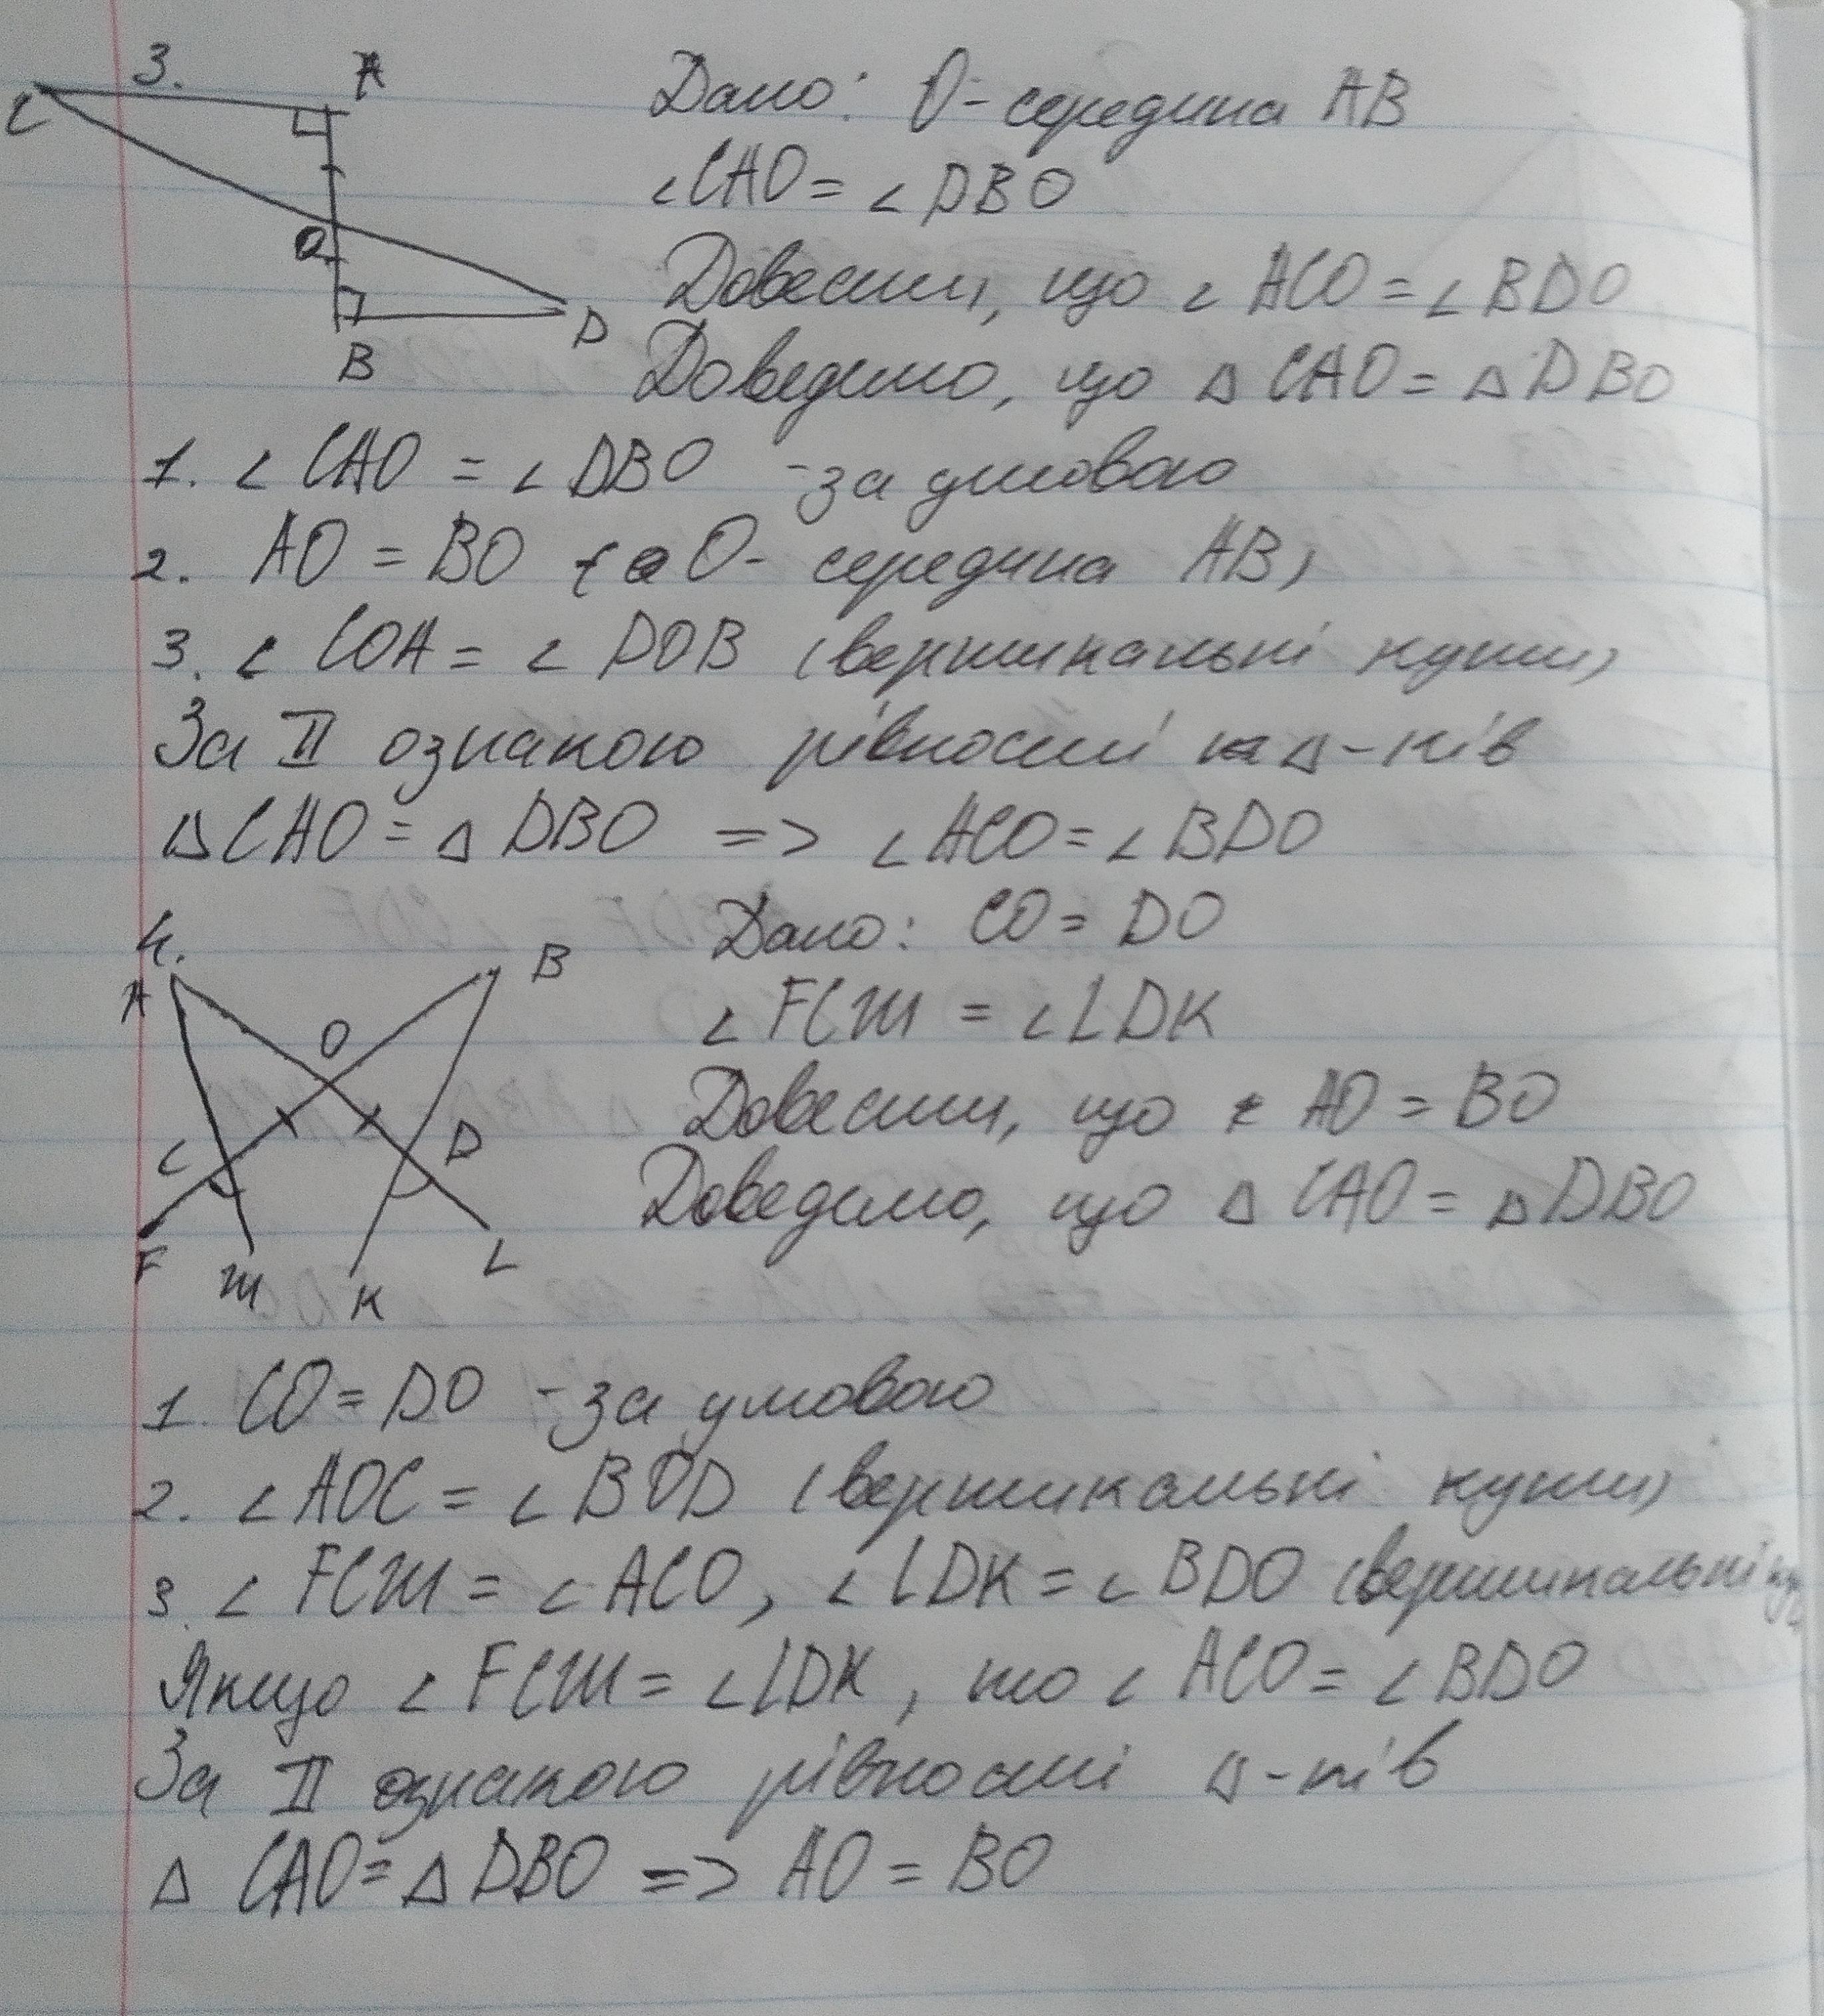 3.
C
A
O
B
D
Дано: O - середина AB
∠CAO = ∠DBO
Довести, що ∠ACO = ∠BDO
Доведемо, що △CAO = △DBO
1. ∠CAO = ∠DBO - за умовою
2. AO = BO (O - середина AB)
3. ∠COA = ∠DOB (вертикальні кути)
За II ознакою рівності △-ків
△CAO = △DBO => ∠ACO = ∠BDO
4.
A
B
O
C
D
F
M
K
L
Дано: CO = DO
∠FCM = ∠LDK
Довести, що AO = BO
Доведемо, що △CAO = △DBO
1. CO = DO - за умовою
2. ∠AOC = ∠BOD (вертикальні кути)
3. ∠FCM = ∠ACO, ∠LDK = ∠BDO (вертикальні
Якщо ∠FCM = ∠LDK, то ∠ACO = ∠BDO
За II ознакою рівності △-ків
△CAO = △DBO => AO = BO